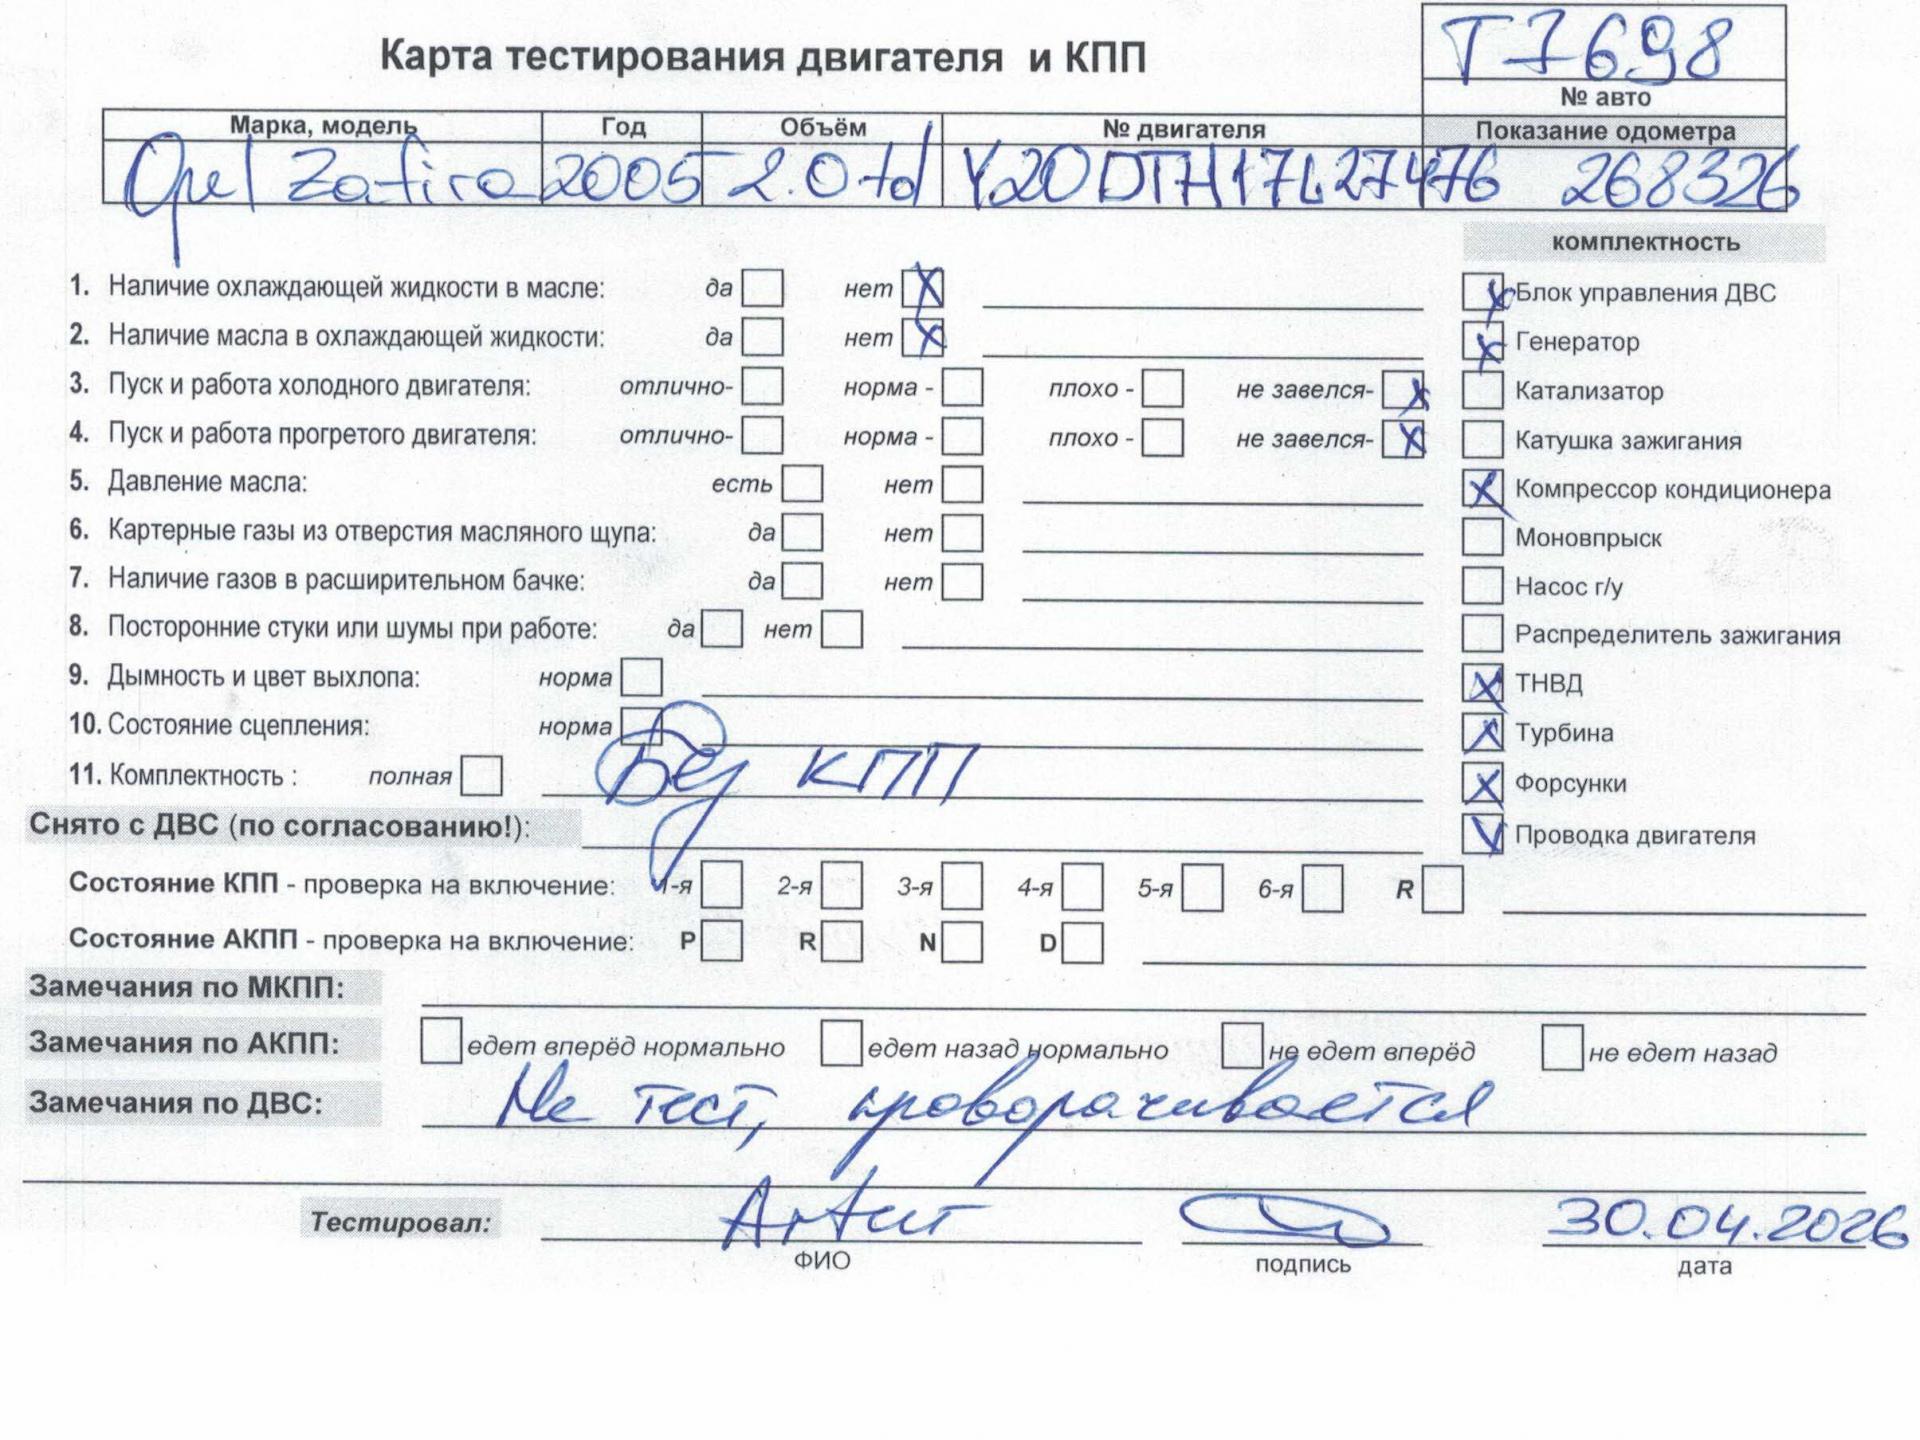 Карта тестирования двигателя и КПП
T7698
№ авто
Марка, модель Год Объём № двигателя Показание одометра
Opel Zafira 2005 2.0 td Y20DTH 17L27476 268326
комплектность
1. Наличие охлаждающей жидкости в масле: да нет X
X Блок управления ДВС
2. Наличие масла в охлаждающей жидкости: да нет X
X Генератор
3. Пуск и работа холодного двигателя: отлично- норма - плохо - не завелся- X
Катализатор
4. Пуск и работа прогретого двигателя: отлично- норма - плохо - не завелся- X
Катушка зажигания
5. Давление масла: есть нет
X Компрессор кондиционера
6. Картерные газы из отверстия масляного щупа: да нет
Моновпрыск
7. Наличие газов в расширительном бачке: да нет
Насос г/у
8. Посторонние стуки или шумы при работе: да нет
Распределитель зажигания
9. Дымность и цвет выхлопа: норма
X ТНВД
10. Состояние сцепления: норма
X Турбина
11. Комплектность : полная Без КПП
X Форсунки
Снято с ДВС (по согласованию!):
V Проводка двигателя
Состояние КПП - проверка на включение: 1-я 2-я 3-я 4-я 5-я 6-я R
Состояние АКПП - проверка на включение: P R N D
Замечания по МКПП:
Замечания по АКПП: едет вперёд нормально едет назад нормально не едет вперёд не едет назад
Замечания по ДВС: Не тест, проворачивается
Тестировал: Artur 30.04.2026
ФИО подпись дата